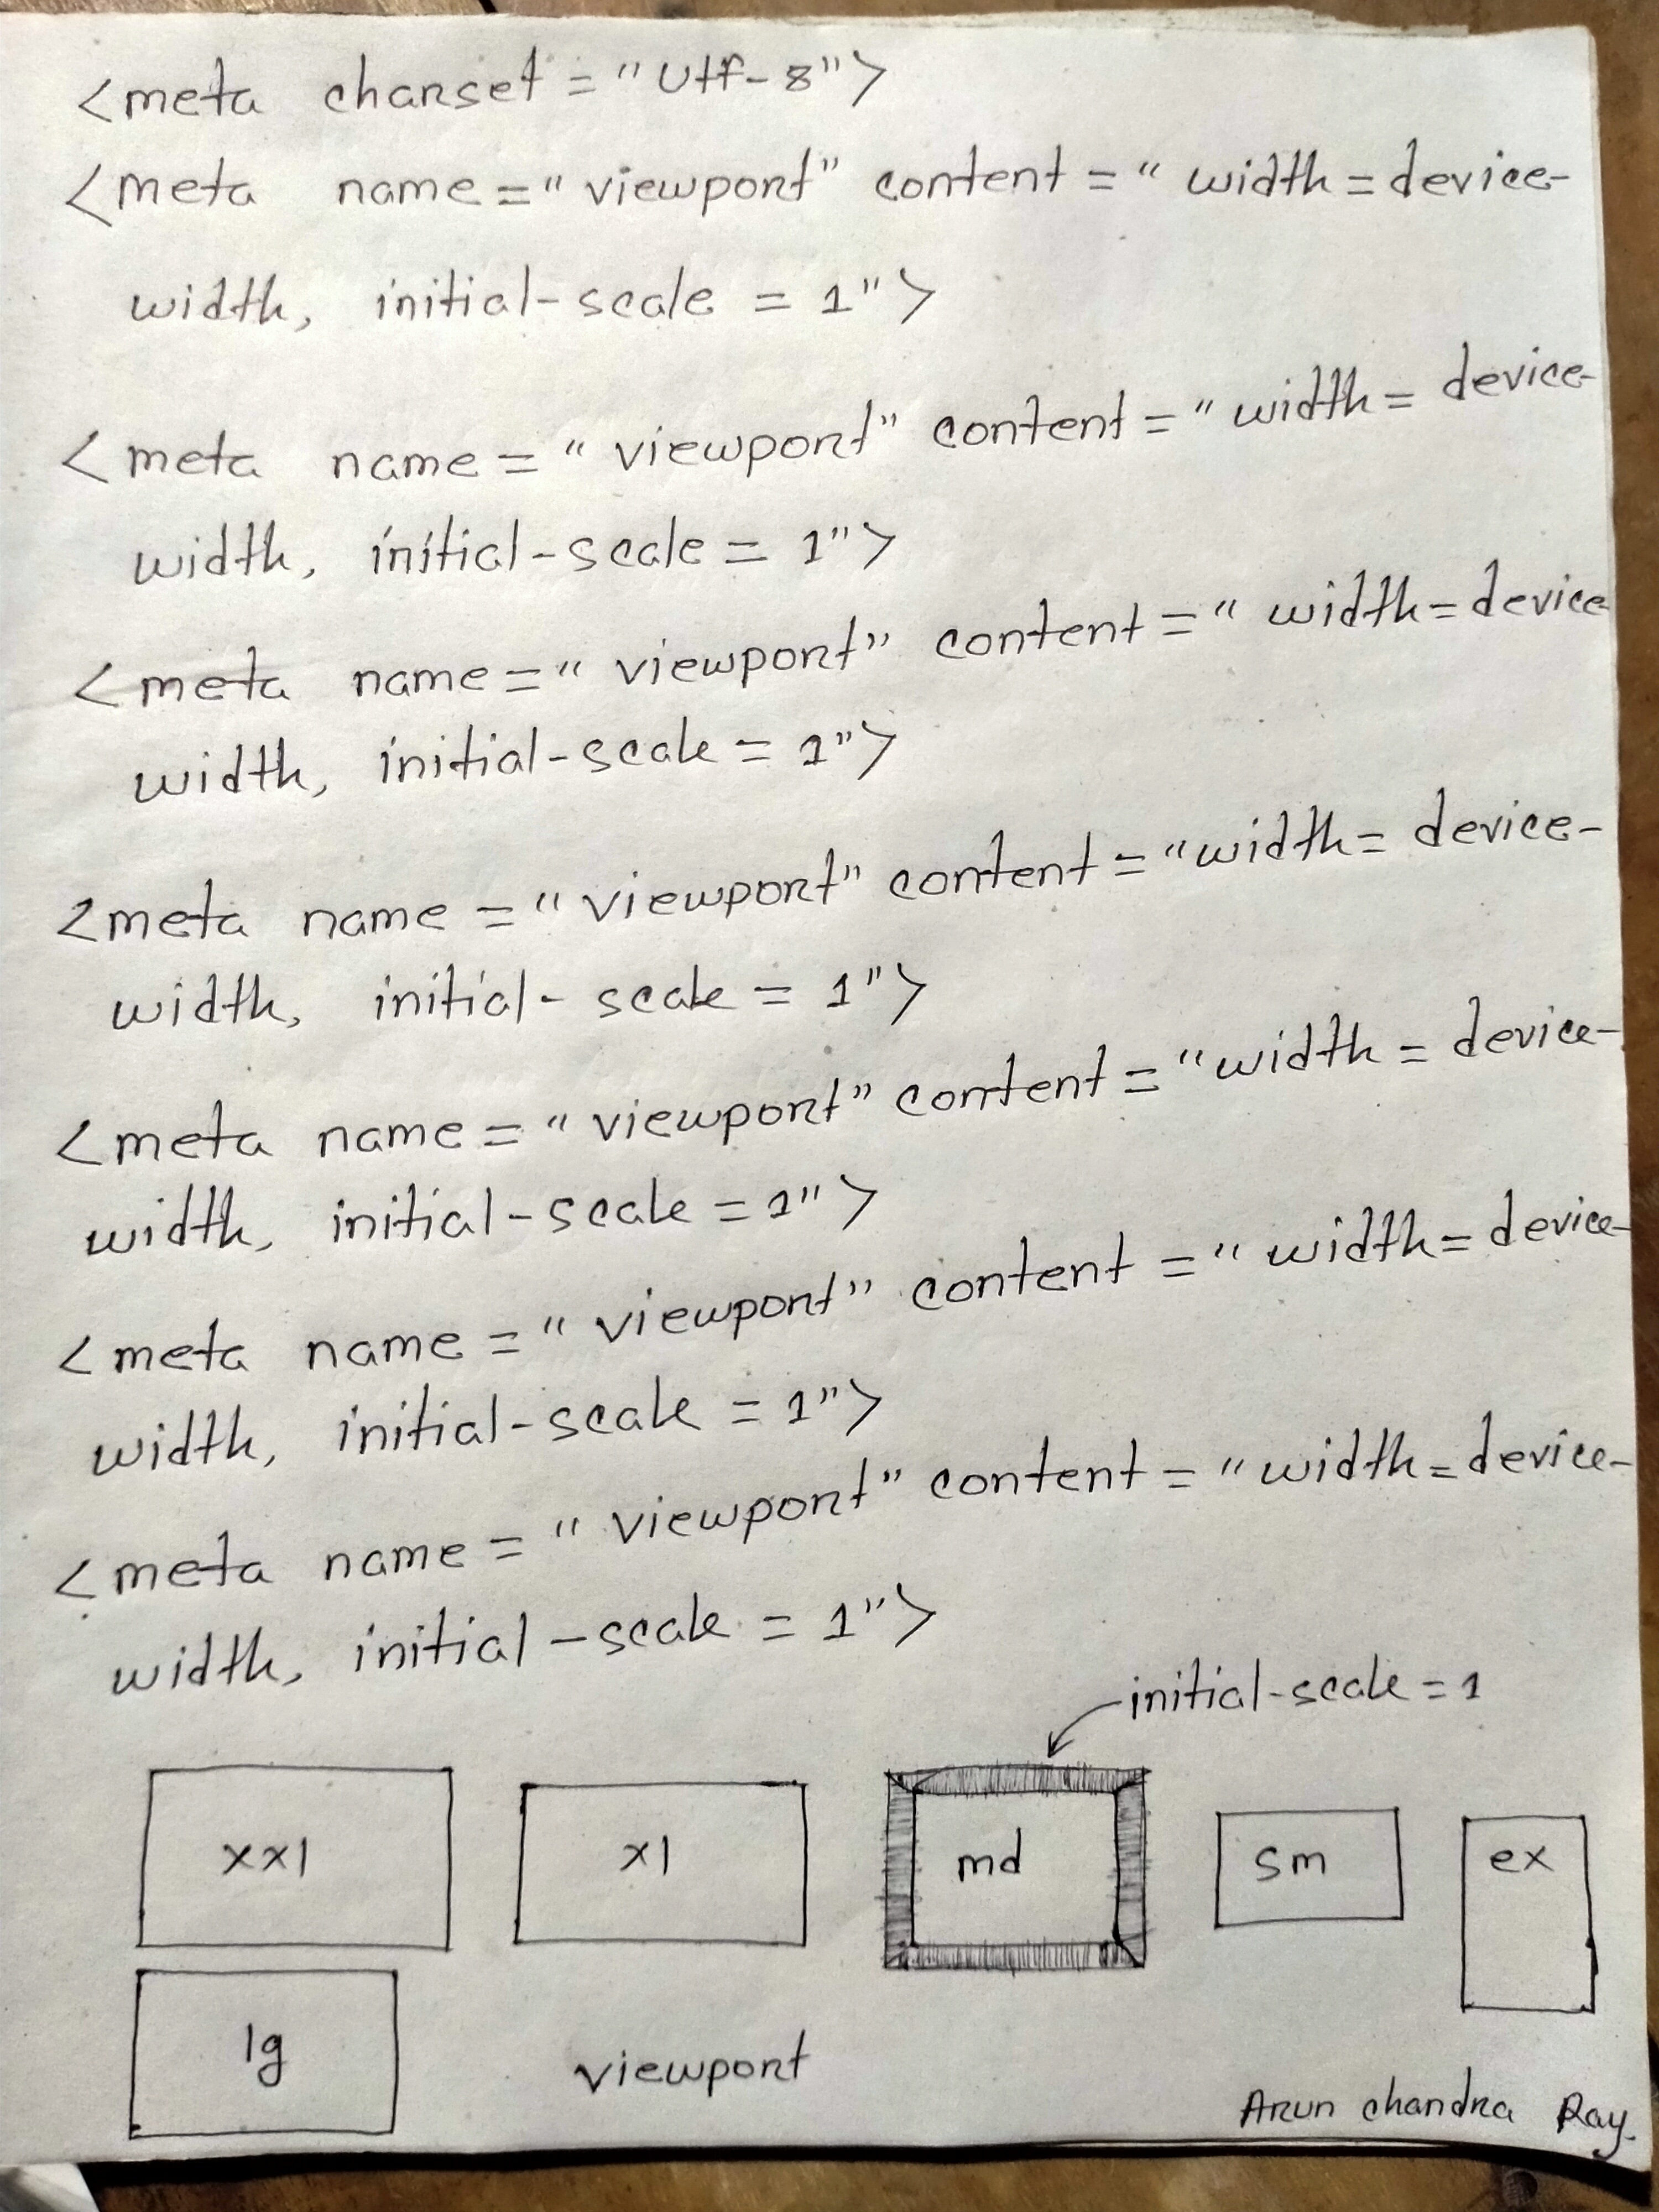 <meta charset = "Utf-8">
<meta name = "viewport" content = "width = device-
width, initial-scale = 1">
<meta name = "viewport" content = "width = device-
width, initial-scale = 1">
<meta name = "viewport" content = "width = device
width, initial-scale = 1">
<meta name = "viewport" content = "width = device-
width, initial-scale = 1">
<meta name = "viewport" content = "width = device-
width, initial-scale = 1">
<meta name = "viewport" content = "width = device-
width, initial-scale = 1">
<meta name = "viewport" content = "width = device-
width, initial-scale = 1">
initial-scale = 1
xxl xl md sm ex
lg
viewport
Arun chandra Ray.